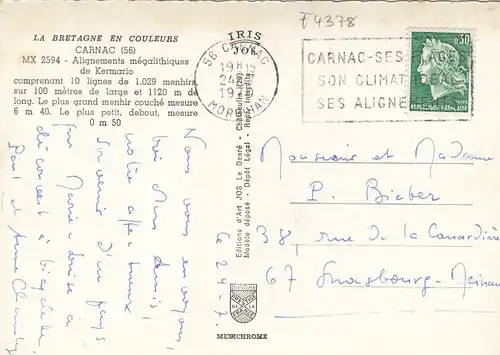 T4378
LA BRETAGNE EN COULEURS
CARNAC (56)
MX 2594 - Alignements mégalithiques
de Kermario
comprenant 10 lignes de 1.029 menhirs
sur 100 mètres de large et 1120 m de
long. Le plus grand menhir couché mesure
6 m 40. Le plus petit, debout, mesure
0 m 50
Nous vous envoyons,
très chers amis,
notre affectueux
souvenir d'un pays
que Marie-Louise a
découvert à bicyclette
Paul et Anne
Le 24-7.
IRIS
JOS
Editions d'Art JOS Le Doaré - Châteaulin
Modèle déposé - Dépôt Légal - Repr. Interdite
56 CARNAC
19H15
24
19
MORBIHAN
CARNAC-SES PLAGES
SON CLIMAT IDEAL
SES ALIGNE
0,30
REPUBLIQUE FRANÇAISE
Monsieur et Madame
P. Bieber
38, rue de la Canardière
67 Strasbourg-Meinau
MEXICHROME